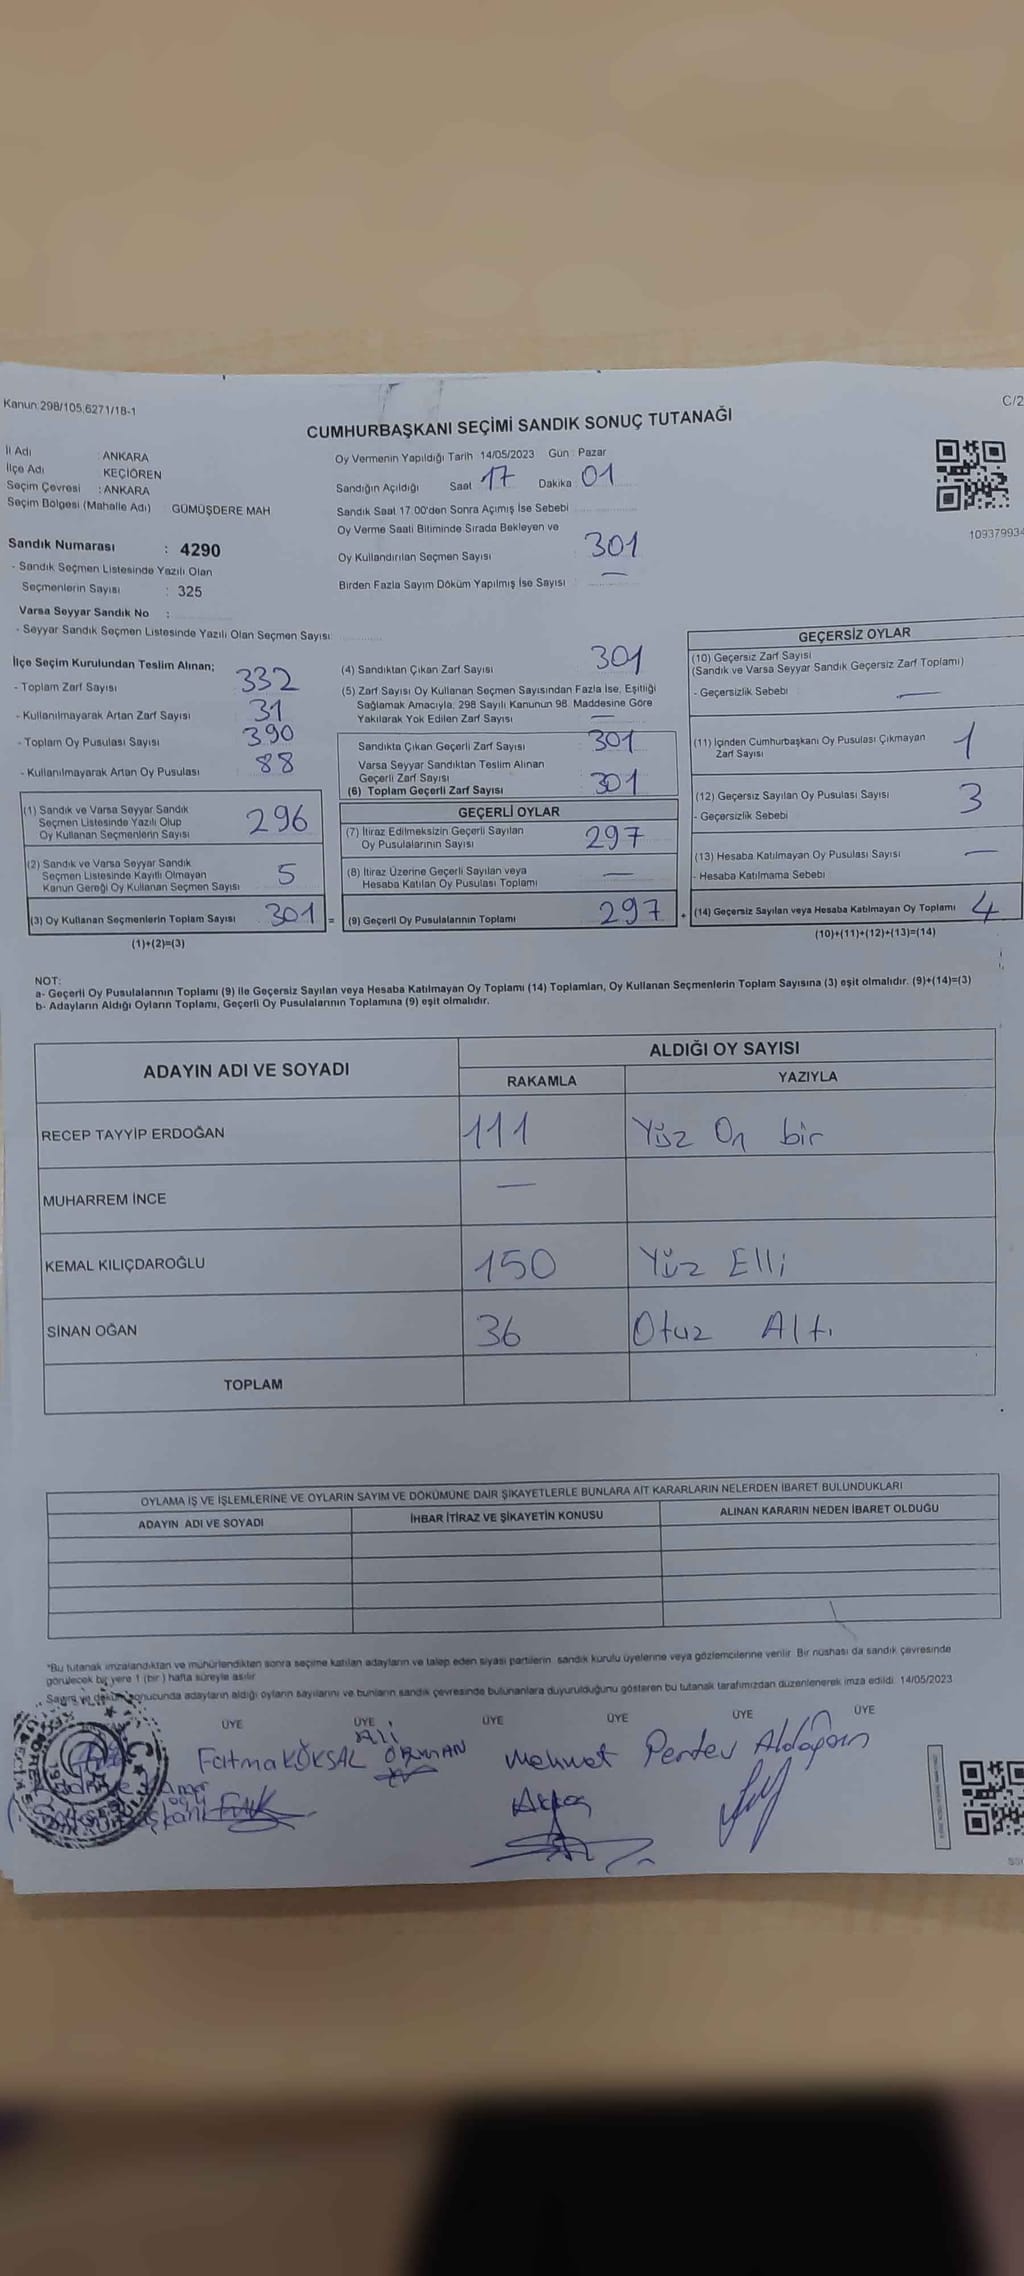 Kanun:298/105,6271/18-1
C/2
CUMHURBAŞKANI SEÇİMİ SANDIK SONUÇ TUTANAĞI
İl Adı : ANKARA
İlçe Adı : KEÇİÖREN
Seçim Çevresi : ANKARA
Seçim Bölgesi (Mahalle Adı) : GÜMÜŞDERE MAH
Sandık Numarası : 4290
- Sandık Seçmen Listesinde Yazılı Olan
Seçmenlerin Sayısı : 325
Varsa Seyyar Sandık No :
- Seyyar Sandık Seçmen Listesinde Yazılı Olan Seçmen Sayısı:
Oy Vermenin Yapıldığı Tarih 14/05/2023 Gün : Pazar
Sandığın Açıldığı Saat 17 Dakika : 01
Sandık Saat 17.00'den Sonra Açımış İse Sebebi
Oy Verme Saati Bitiminde Sırada Bekleyen ve
Oy Kullandırılan Seçmen Sayısı 301
Birden Fazla Sayım Döküm Yapılmış İse Sayısı : —
109379934
İlçe Seçim Kurulundan Teslim Alınan;
- Toplam Zarf Sayısı 332
- Kullanılmayarak Artan Zarf Sayısı 31
- Toplam Oy Pusulası Sayısı 390
- Kullanılmayarak Artan Oy Pusulası 88
(1) Sandık ve Varsa Seyyar Sandık
Seçmen Listesinde Yazılı Olup
Oy Kullanan Seçmenlerin Sayısı 296
(2) Sandık ve Varsa Seyyar Sandık
Seçmen Listesinde Kayıtlı Olmayan
Kanun Gereği Oy Kullanan Seçmen Sayısı 5
(3) Oy Kullanan Seçmenlerin Toplam Sayısı 301 =
(1)+(2)=(3)
(4) Sandıktan Çıkan Zarf Sayısı 301
(5) Zarf Sayısı Oy Kullanan Seçmen Sayısından Fazla İse, Eşitliği
Sağlamak Amacıyla, 298 Sayılı Kanunun 98. Maddesine Göre
Yakılarak Yok Edilen Zarf Sayısı —
Sandıkta Çıkan Geçerli Zarf Sayısı 301
Varsa Seyyar Sandıktan Teslim Alınan
Geçerli Zarf Sayısı
(6) Toplam Geçerli Zarf Sayısı 301
GEÇERLİ OYLAR
(7) İtiraz Edilmeksizin Geçerli Sayılan
Oy Pusulalarının Sayısı 297
(8) İtiraz Üzerine Geçerli Sayılan veya
Hesaba Katılan Oy Pusulası Toplamı —
(9) Geçerli Oy Pusulalarının Toplamı 297 +
GEÇERSİZ OYLAR
(10) Geçersiz Zarf Sayısı
(Sandık ve Varsa Seyyar Sandık Geçersiz Zarf Toplamı)
- Geçersizlik Sebebi —
(11) İçinden Cumhurbaşkanı Oy Pusulası Çıkmayan
Zarf Sayısı 1
(12) Geçersiz Sayılan Oy Pusulası Sayısı 3
- Geçersizlik Sebebi
(13) Hesaba Katılmayan Oy Pusulası Sayısı —
- Hesaba Katılmama Sebebi
(14) Geçersiz Sayılan veya Hesaba Katılmayan Oy Toplamı 4
(10)+(11)+(12)+(13)=(14)
NOT:
a- Geçerli Oy Pusulalarının Toplamı (9) ile Geçersiz Sayılan veya Hesaba Katılmayan Oy Toplamı (14) Toplamları, Oy Kullanan Seçmenlerin Toplam Sayısına (3) eşit olmalıdır. (9)+(14)=(3)
b- Adayların Aldığı Oyların Toplamı, Geçerli Oy Pusulalarının Toplamına (9) eşit olmalıdır.
ADAYIN ADI VE SOYADI
ALDIĞI OY SAYISI
RAKAMLA YAZIYLA
RECEP TAYYİP ERDOĞAN 111 Yüz On bir
MUHARREM İNCE —
KEMAL KILIÇDAROĞLU 150 Yüz Elli
SİNAN OĞAN 36 Otuz Altı
TOPLAM
OYLAMA İŞ VE İŞLEMLERİNE VE OYLARIN SAYIM VE DÖKÜMÜNE DAİR ŞİKAYETLERLE BUNLARA AİT KARARLARIN NELERDEN İBARET BULUNDUKLARI
ADAYIN ADI VE SOYADI İHBAR İTİRAZ VE ŞİKAYETİN KONUSU ALINAN KARARIN NEDEN İBARET OLDUĞU
*Bu tutanak imzalandıktan ve mühürlendikten sonra seçime katılan adayların ve talep eden siyasi partilerin sandık kurulu üyelerine veya gözlemcilerine verilir. Bir nüshası da sandık çevresinde
görülecek bir yere 1 (bir) hafta süreyle asılır
Sayım ve döküm sonucunda adayların aldığı oyların sayılarını ve bunların sandık çevresinde bulunanlara duyurulduğunu gösteren bu tutanak tarafımızdan düzenlenerek imza edildi. 14/05/2023
ÜYE ÜYE ÜYE ÜYE ÜYE ÜYE
Fatma KÖKSAL
Ali ORMAN
Mehmet
Pertev